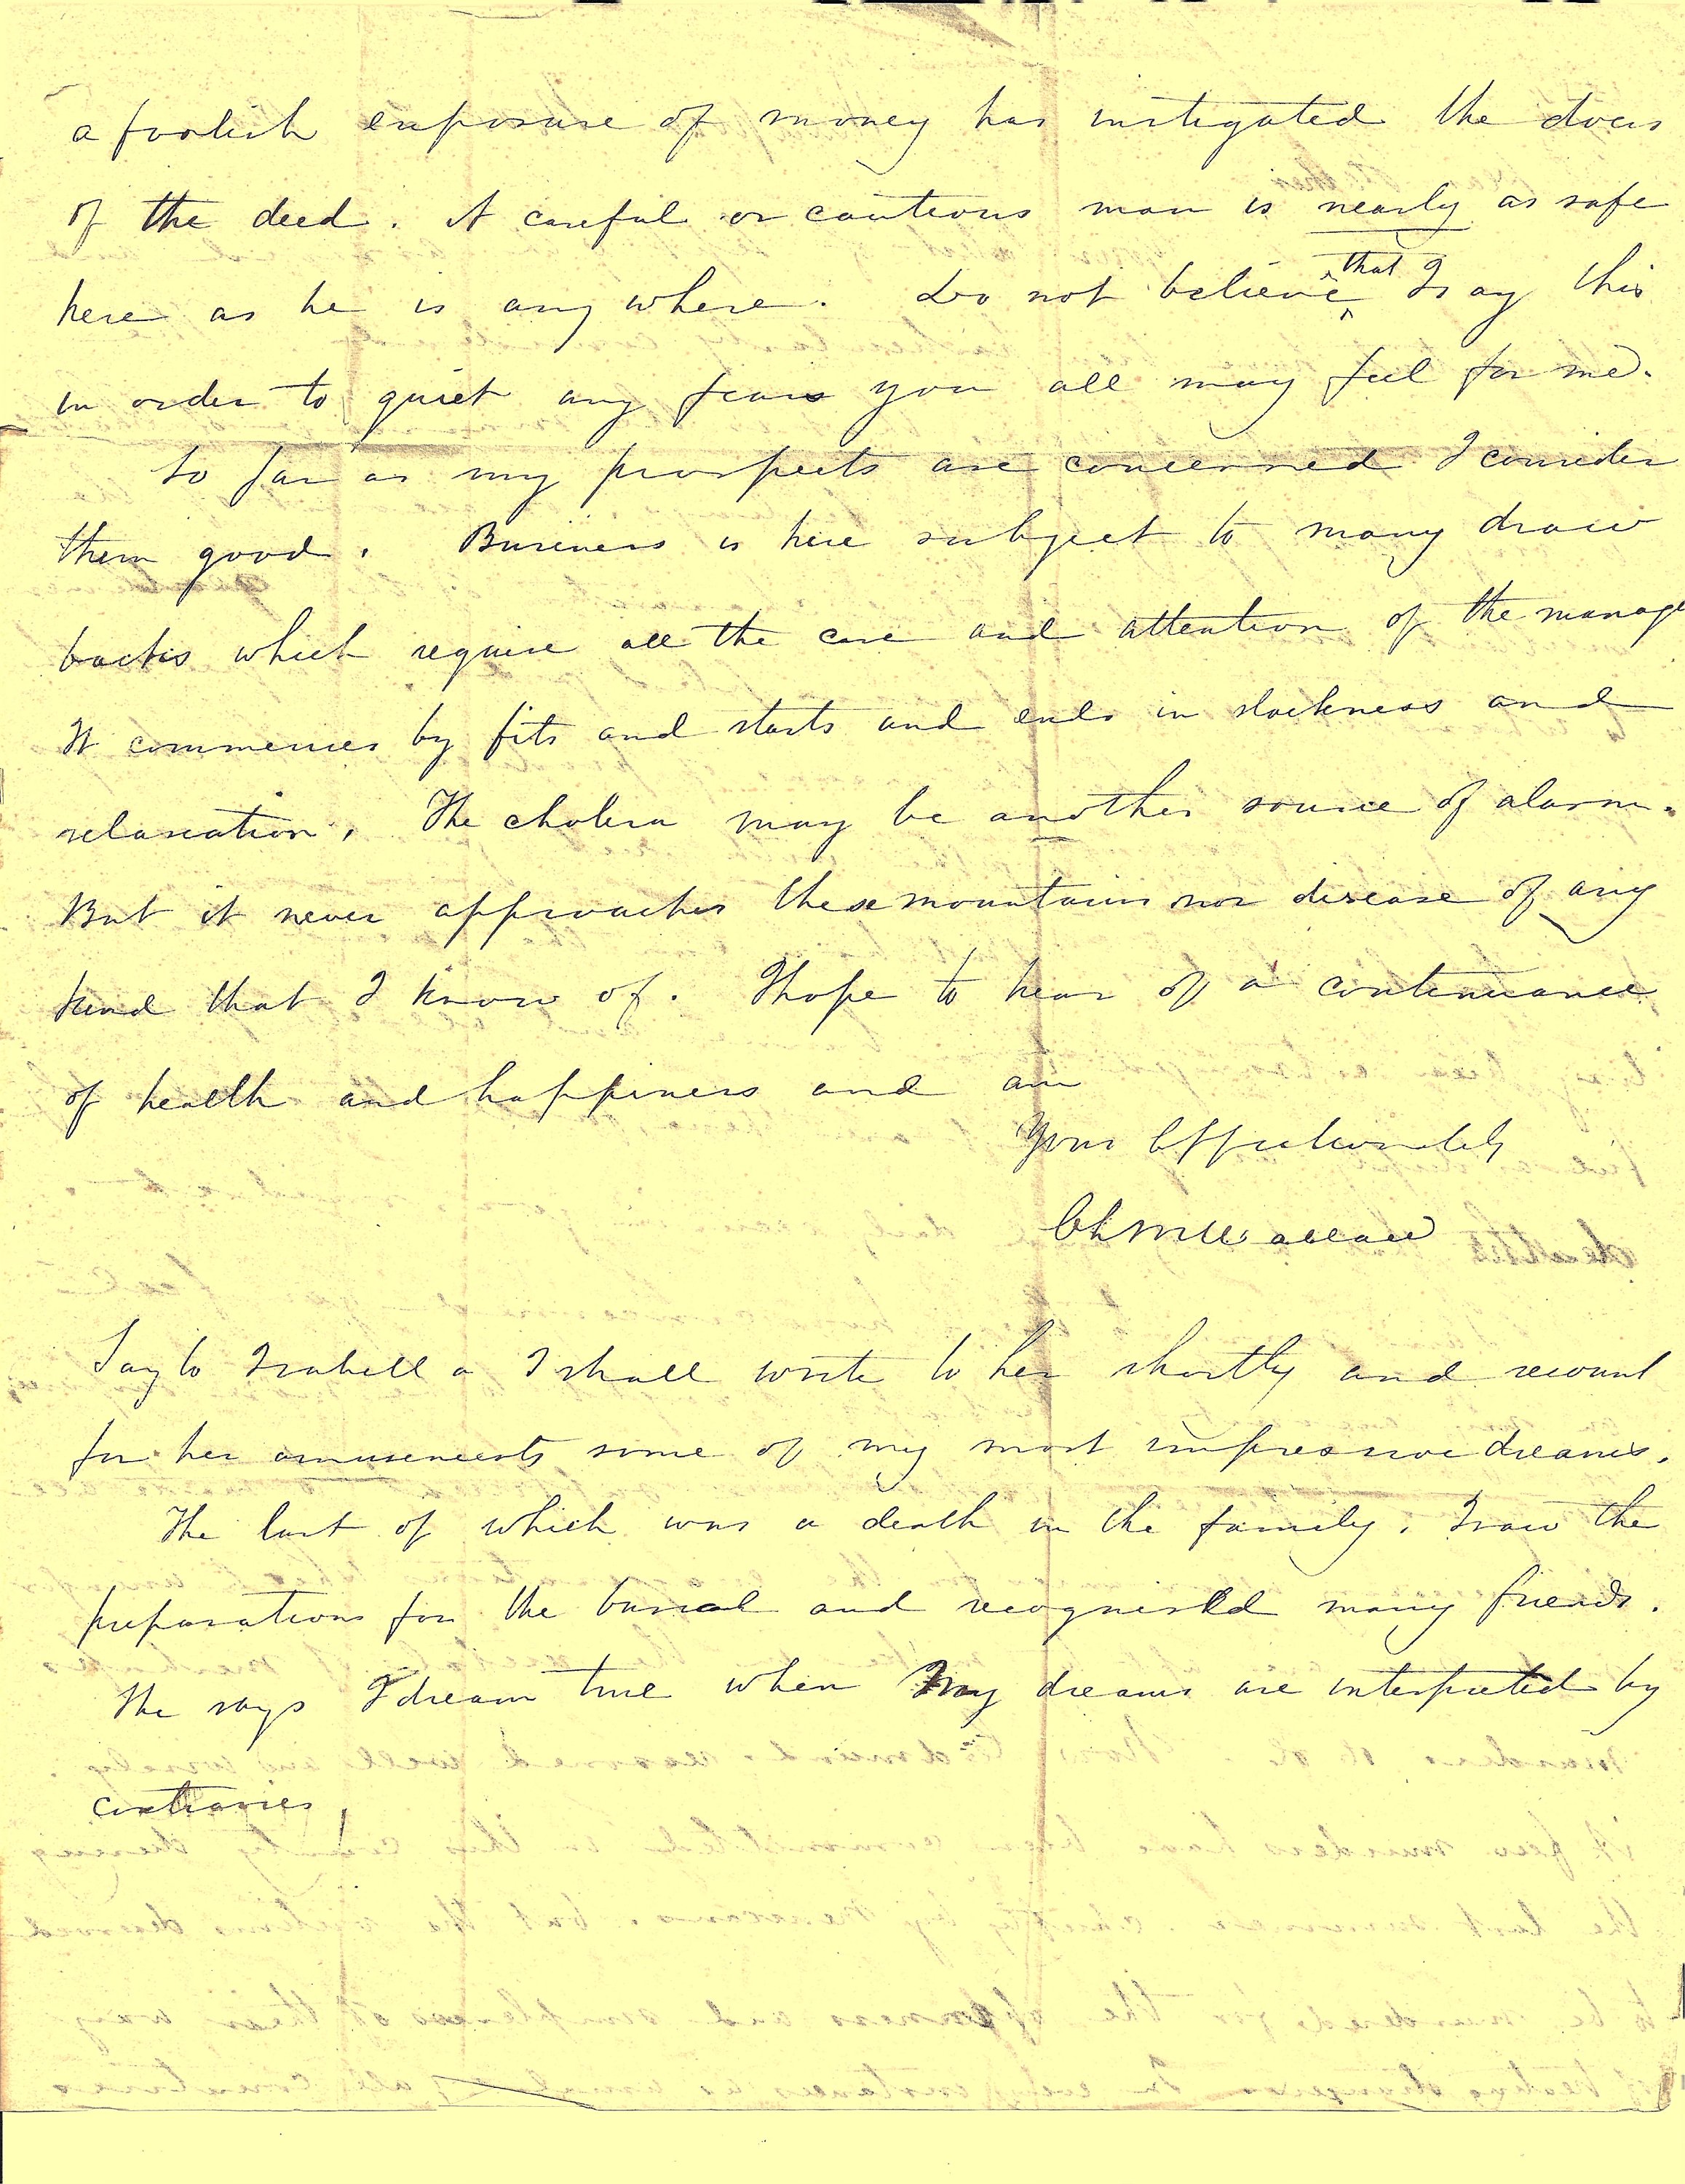 a foolish exposure of money has instigated the doers
of the deed. A careful or cautious man is nearly as safe
here as he is any where. Do not believe that I say this
in order to quiet any fears you all may feel for me.
So far as my prospects are concerned I consider
them good. Business is here subject to many draw
backs which require all the care and attention of the manage
It commences by fits and starts and ends in slackness and
relaxation. The cholera may be another source of alarm.
But it never approaches these mountains nor disease of any
kind that I know of. I hope to hear of a continuance
of health and happiness and am
Your Affectionately
Say to Isabella I shall write to her shortly and recount
for her amusements some of my most impressive dreams.
The last of which was a death in the family. I saw the
preparations for the burial and recognised many friends.
She says I dream true when my dreams are interpreted by
contraries,